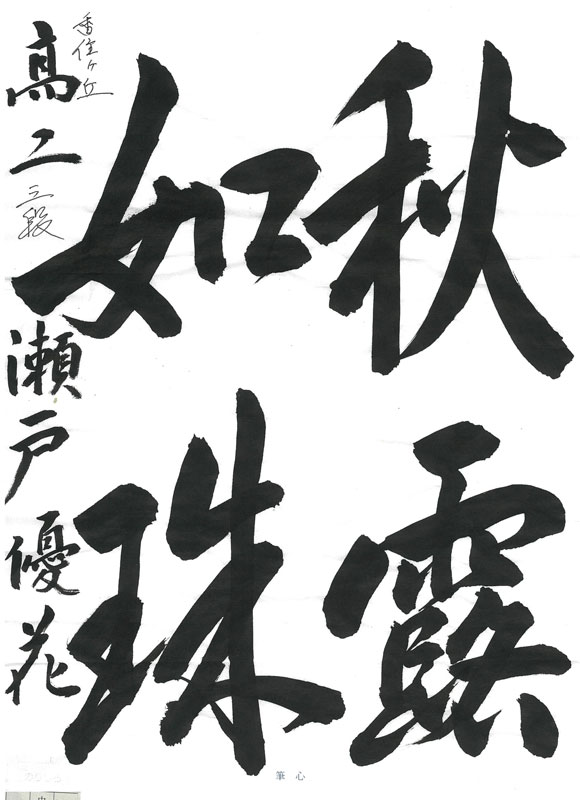 秋露
如珠
香住ヶ丘
高二 三段 瀬戸優花
心筆